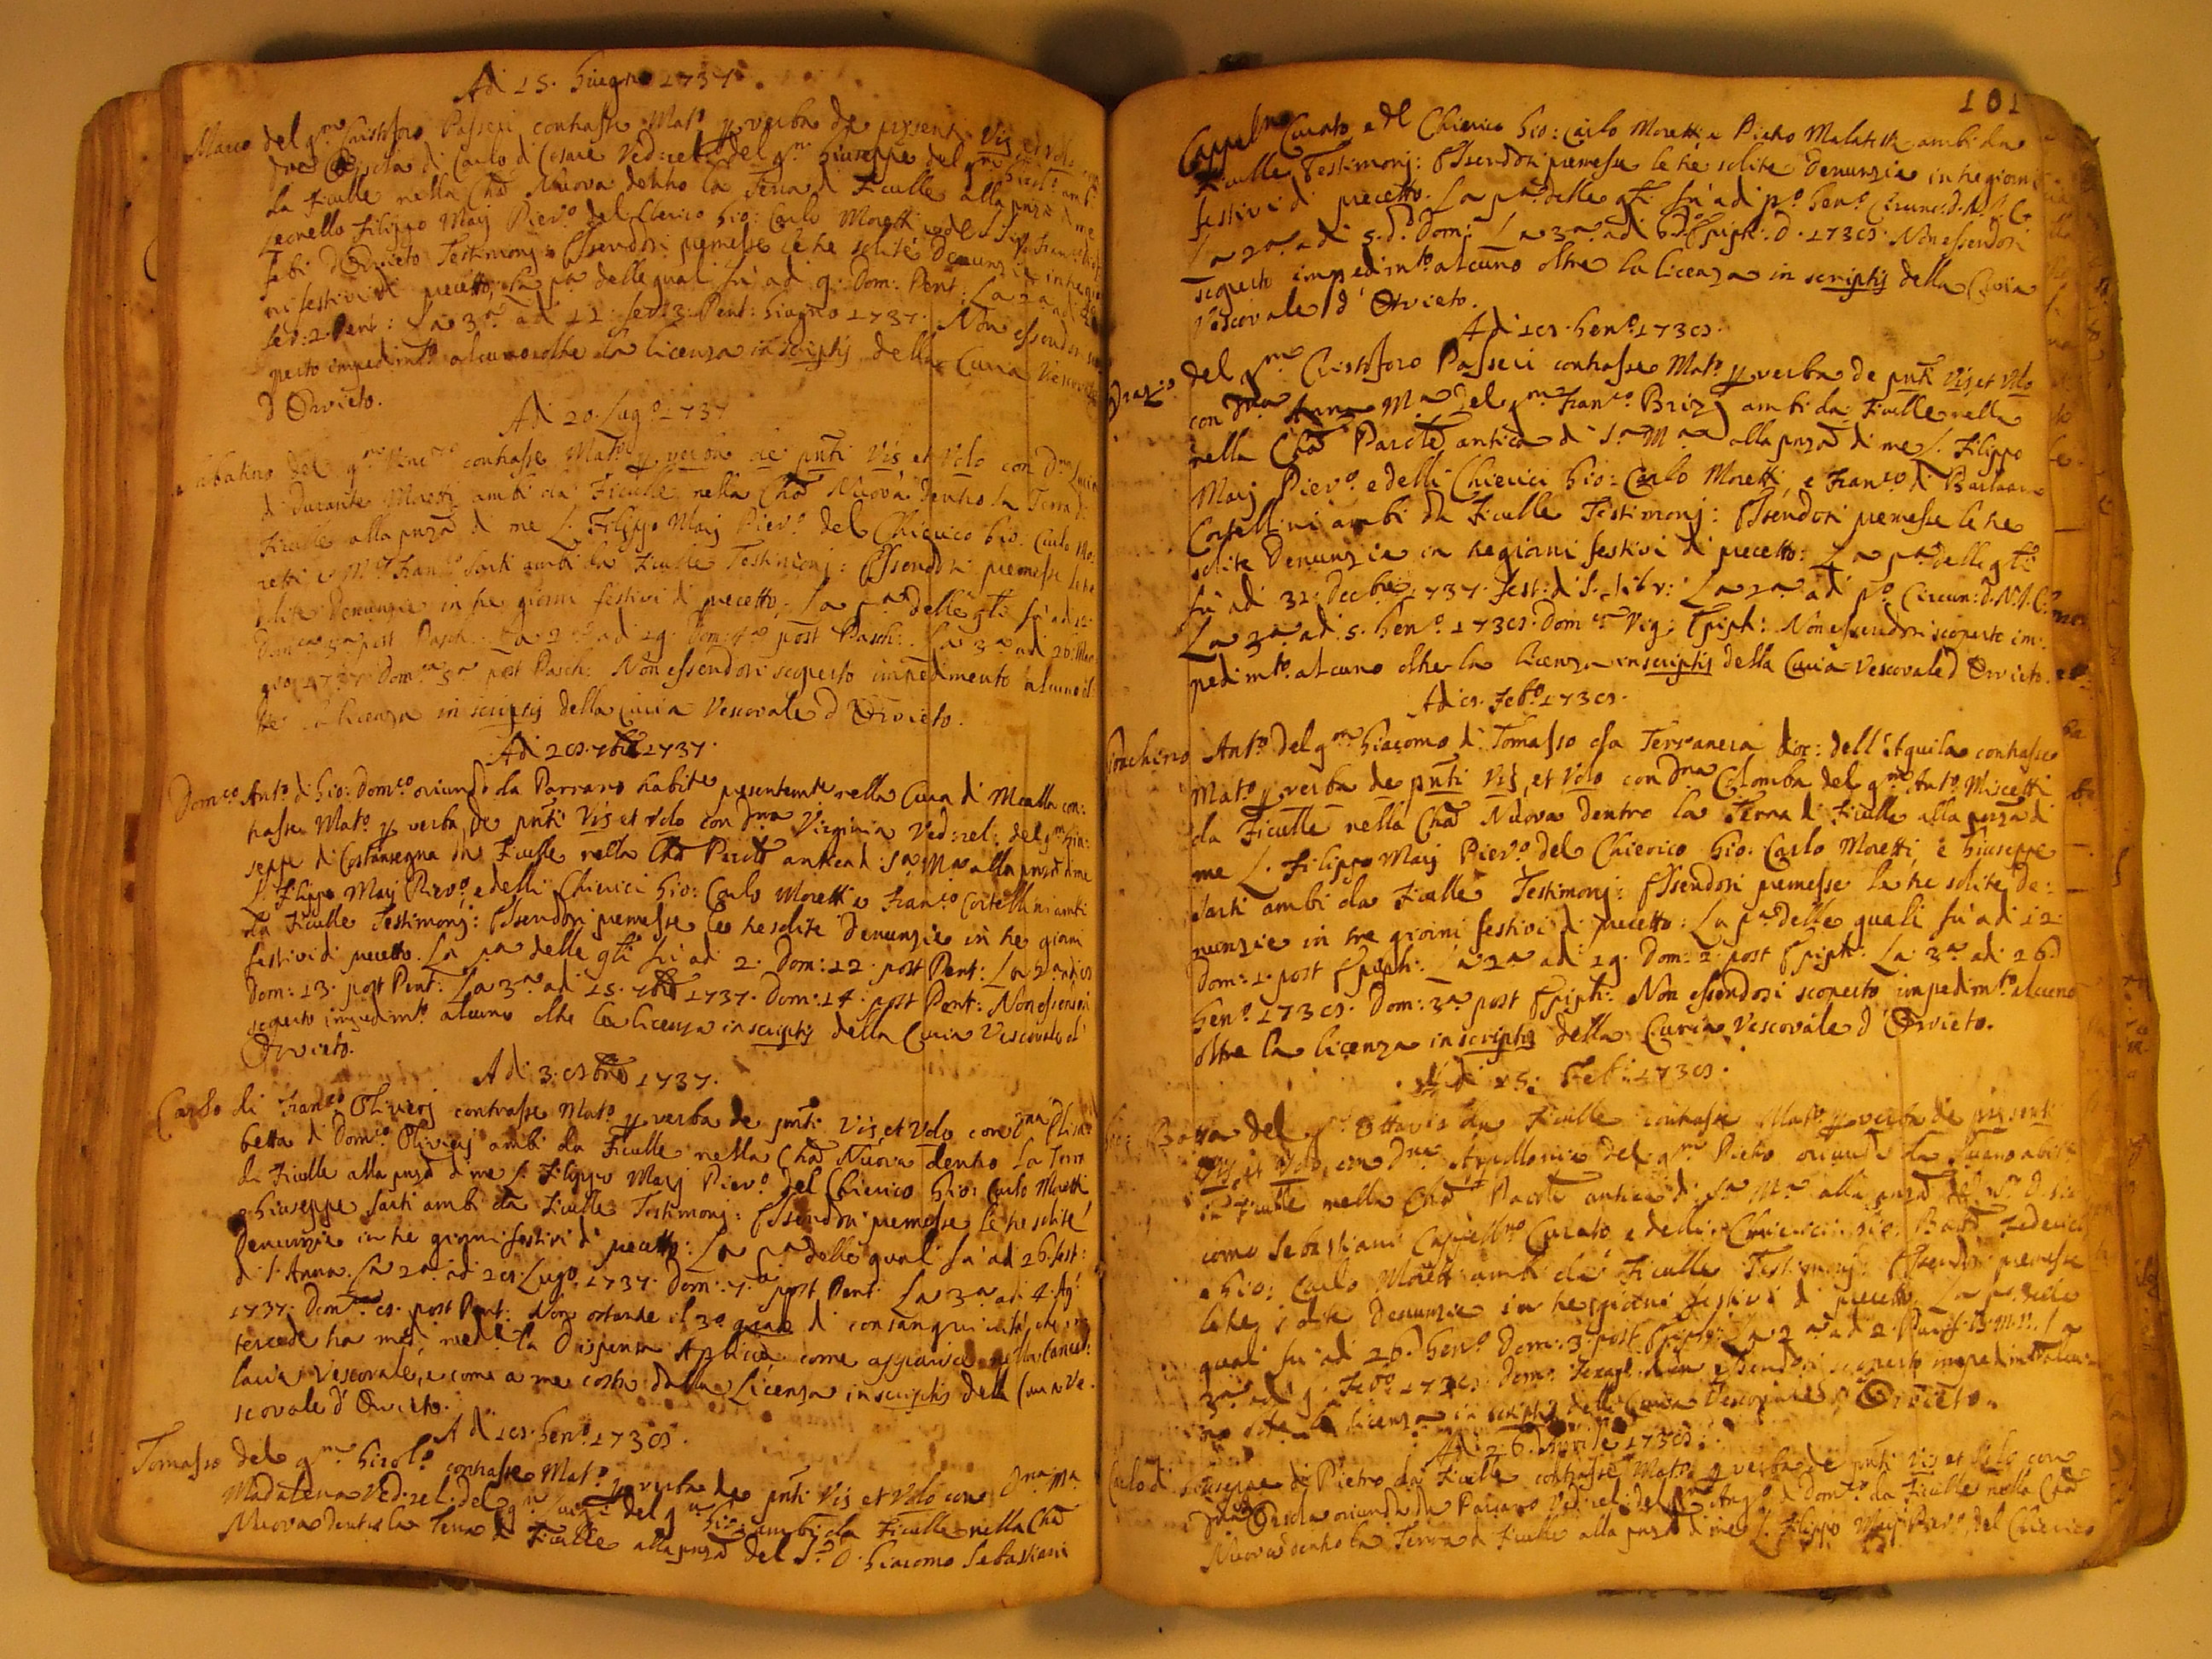 Ad 15. Giugno 1737.
Marco del qm Cristoforo Passeri contrasse Mato p verba de present Vis et Volo con
Dna Orsola di Carlo di Cesare Ved: rel: del qm Giuseppe del qm ambi
da Ficulle nella Cha Nuova dentro la Terra di Ficulle alla pnza di me
Leonello Filippo Maij Pievo del Clerico Gio: Carlo Moretti e del
d'Orvieto Testimonj: Essendosi premesse le tre solite Denunzie in tre gior
ni festivi di precetto, La pa delle quali fù ad 9. Dom: Pent: La 2a ad
fer: 2. Pent: La 3a ad 11. fer: 3. Pent: Giugno 1737. Non essendosi sco
perto impedimto alcuno oltre la licenza in scriptis della Curia Vescovale
d'Orvieto.
Ad 20. Lugo 1737
Sabatino del qm contrasse Mato p verba de pnti Vis et Volo con Dna Lucia
di Durante Moretti ambi da Ficulle nella Cha Nuova dentro la Terra di
Ficulle alla pnza di me L. Filippo Maij Pievo del Chierico Gio: Carlo Mo:
retti e Franco Sarti ambi da Ficulle Testimonj: Essendosi premesse le tre
solite Denunzie in tre giorni festivi di precetto, La pa delle qli fù ad 12
Domca 3a post Pasch: La 2a ad 19. Dom: 4a post Pasch: La 3a ad 26. Mag
gio 1737 Domca 5a post Pasch: Non essendosi scoperto impedimento alcuno ol:
tre la licenza in scriptis della Curia Vescovale d'Orvieto.
Ad 28. 7bre 1737.
Domco Anto di Gio: Domco oriundo da Parrano habite presentemte nella Cura di Mealla con:
trasse Mato p verba de pnti Vis et Volo con Dna Virginia Ved: rel: del qm Giu:
seppe di Costansegna da Ficulle nella Cha Parole antica di Sa Ma alla pnza di me
L. Filippo Maij Pievo, e delli Chierici Gio: Carlo Moretti e Franco Cortellini ambi
da Ficulle Testimonj: Essendosi premesse le tre solite Denunzie in tre giorni
festivi di precetto. La pa delle qli fù ad 2. Dom: 12. post Pent: La 2a ad 8
Dom: 13. post Pent: La 3a ad 15. 7bre 1737. Dom: 14. post Pent: Non essendosi
scoperto impedimto alcuno oltre la licenza in scriptis della Curia Vescovale d'
Orvieto.
Ad 3. 8bre 1737.
Carlo di Franco Oliverj contrasse Mato p verba de pnti Vis et Volo con Dna Elisa
betta di Domco Oliverj ambi da Ficulle nella Cha Nuova dentro la Terra
di Ficulle alla pnza di me L. Filippo Maij Pievo del Chierico Gio: Carlo Moretti
e Giuseppe Sarti ambi da Ficulle Testimonj: Essendosi premesse le tre solite
Denunzie in tre giorni festivi di precetto: La pa delle quali fù ad 26. fest:
di S. Anna. La 2a ad 28. Lugo 1737. Dom: 7. post Pent. La 3a ad 4. Ago
1737. Domca 8. post Pent: Non ostante il 3o grado di consanguinità, che in
tercede tra med, med la Dispensa Applica come apparisce nella Cancel:
laria Vescovale, e come a me costa dalla Licenza in scriptis della Curia Ve:
scovale d'Orvieto.
Ad 18. Geno 1738.
Tomasso del qm Girolo contrasse Mato p verba de pnti Vis et Volo con Dna Ma
Madalena Ved: rel: del qm del qm Gio: ambi da Ficulle nella Cha
Nuova dentro la Terra di Ficulle alla pnza del Sr D. Giacomo Sebastiani
101
Cappelno Curato e del Chierico Gio: Carlo Moretti e Pietro Malatesta ambi da
Ficulle Testimonj: Essendosi premesse le tre solite Denunzie in tre giorni
festivi di precetto. La pa delle qli fù ad po Geno Circunc: d. N. S. G. C.
La 2a ad 5. do Dom: La 3a ad 6. do Epiph: D. 1738. Non essendosi
scoperto impedimto alcuno oltre la licenza in scriptis della Curia
Vescovale d'Orvieto.
Ad 18. Geno 1738.
Orazio del qm Cristoforo Passeri contrasse Mato p verba de pnti Vis et Volo
con Dna Anna Ma del qm Franco Brizj ambi da Ficulle nella
nella Cha Parole antica di Sa Ma alla pnza di me L. Filippo
Maij Pievo e delli Chierici Gio: Carlo Moretti, e Franco di Barlaam
Cortellini ambi da Ficulle Testimonj: Essendosi premesse le tre
solite Denunzie in tre giorni festivi di precetto: La pa delle qli
fù ad 31. Decbre 1737. Fest: di S. Silv: La 2a ad po Circun: d. N. S. G. C.
La 3a ad 5. Geno 1738. Domca Vig: Epiph: Non essendosi scoperto im:
pedimto alcuno oltre la licenza in scriptis della Curia Vescovale d'Orvieto.
Ad 8. Febo 1738.
Gioachino Anto del qm Giacomo di Tomasso da Terranera dioc: dell'Aquila contrasse
Mato p verba de pnti Vis, et Volo con Dna Colomba del qm Anto Miscetti
da Ficulle nella Cha Nuova dentro la Terra di Ficulle alla pnza di
me L. Filippo Maij Pievo del Chierico Gio: Carlo Moretti, e Giuseppe
Sarti ambi da Ficulle Testimonj: Essendosi premesse le tre solite De:
nunzie in tre giorni festivi di precetto: La pa delle quali fù ad 12
Dom: 1. post Epiph: La 2a ad 19. Dom: 2. post Epiph: La 3a ad 26.
Geno 1738. Dom: 3a post Epiph: Non essendosi scoperto impedimto alcuno
oltre la licenza in scriptis della Curia Vescovale d'Orvieto.
Ad di 15. Feb: 1738.
Gio: Batta del qm Ottavio da Ficulle contrasse Mato p verba de presenti
Vis, et Volo con Dna Apollonia del qm Pietro oriundi da abite
in Ficulle nella Cha Parole antica di Sa Ma alla pnza del Sr D. Gia
como Sebastiani Cappellno Curato e delli Chierici Gio: Batta Federici
e Gio: Carlo Moretti ambi da Ficulle Testimonj: Essendosi premesse
le tre solite Denunzie in tre giorni festivi di precetto. La pa delle
quali fù ad 26. Geno Dom: 3. post Epiph: La 2a ad 2. Purif: B. M. V. La
3a ad 9. Febo 1738. Dom: Sexage: Non essendosi scoperto impedimto alcu:
no oltre la licenza in scriptis della Curia Vescovale d'Orvieto.
Ad 26. Aprile 1738.
Carlo di Giuseppe di Pietro da Ficulle contrasse Mato p verba de pnti Vis et Volo con
Dna Orsola oriunda da Parrano Ved: rel: del qm Ango di Domco da Ficulle nella Cha
Nuova dentro la Terra di Ficulle alla pnza di me L. Filippo Maij Pievo, del Chierico